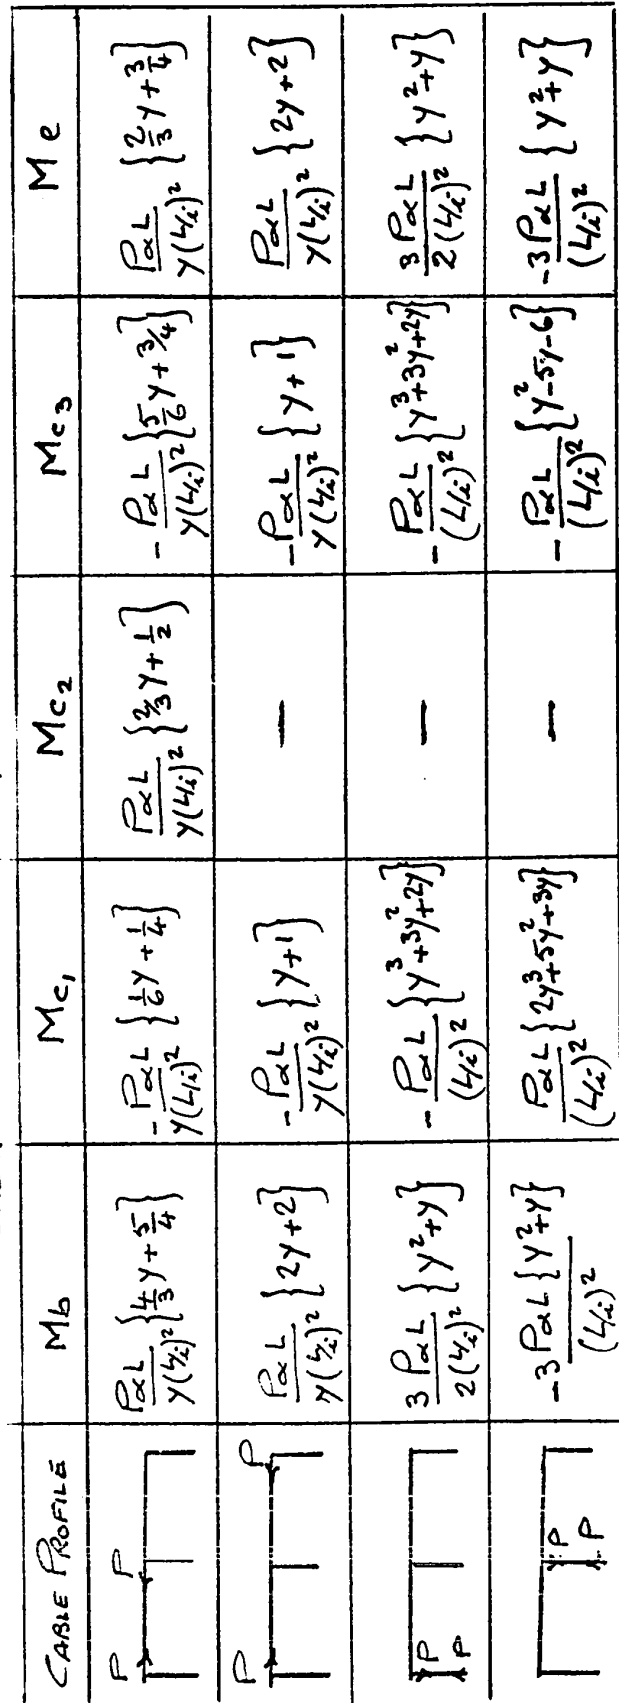 CABLE PROFILE Mb Mc₁ Mc₂ Mc₃ Me
P P
PαL/y(L/i)² {4/3 y + 5/4}
-PαL/y(L/i)² {1/6 y + 1/4}
PαL/y(L/i)² {2/3 y + 1/2}
-PαL/y(L/i)² {5/6 y + 3/4}
PαL/y(L/i)² {2/3 y + 3/4}
P P
PαL/y(L/i)² {2y+2}
-PαL/y(L/i)² {y+1}
-
-PαL/y(L/i)² {y+1}
PαL/y(L/i)² {2y+2}
P
P
3PαL/2(L/i)² {y²+y}
-PαL/(L/i)² {y³+3y²+2y}
-
-PαL/(L/i)² {y³+3y²+2y}
3PαL/2(L/i)² {y²+y}
P
P
-3PαL{y²+y}/(L/i)²
PαL{2y³+5y²+3y}/(L/i)²
-
-PαL/(L/i)² {y²-5y-6}
-3PαL/(L/i)² {y²+y}